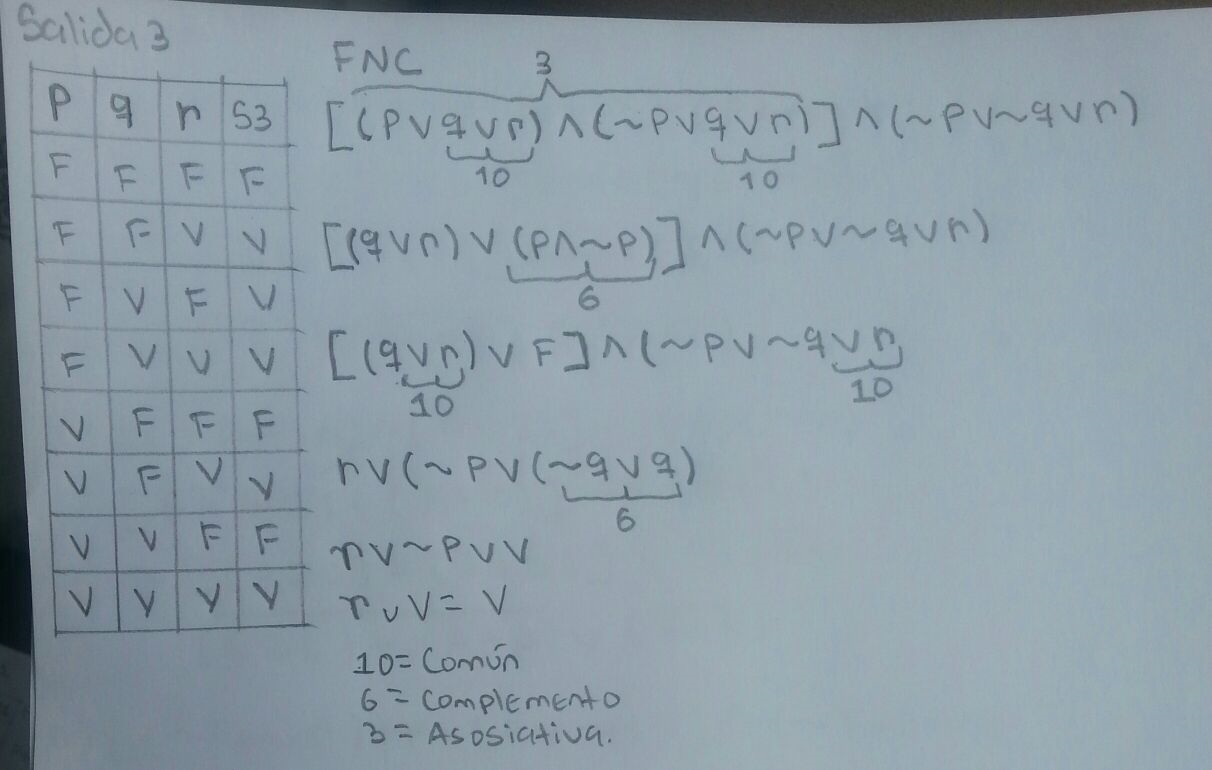 Salida 3
P q r S3
F F F F
F F V V
F V F V
F V V V
V F F F
V F V V
V V F F
V V V V
FNC 3
[(p∨q∨r)∧(~p∨q∨r)]∧(~p∨~q∨r)
10 10
[(q∨r)∨(p∧~p)]∧(~p∨~q∨r)
6
[(q∨r)∨F]∧(~p∨~q∨r
10 10
r∨(~p∨(~q∨q)
6
r∨~p∨V
r∨V=V
10=Común
6=Complemento
3=Asosiativa.